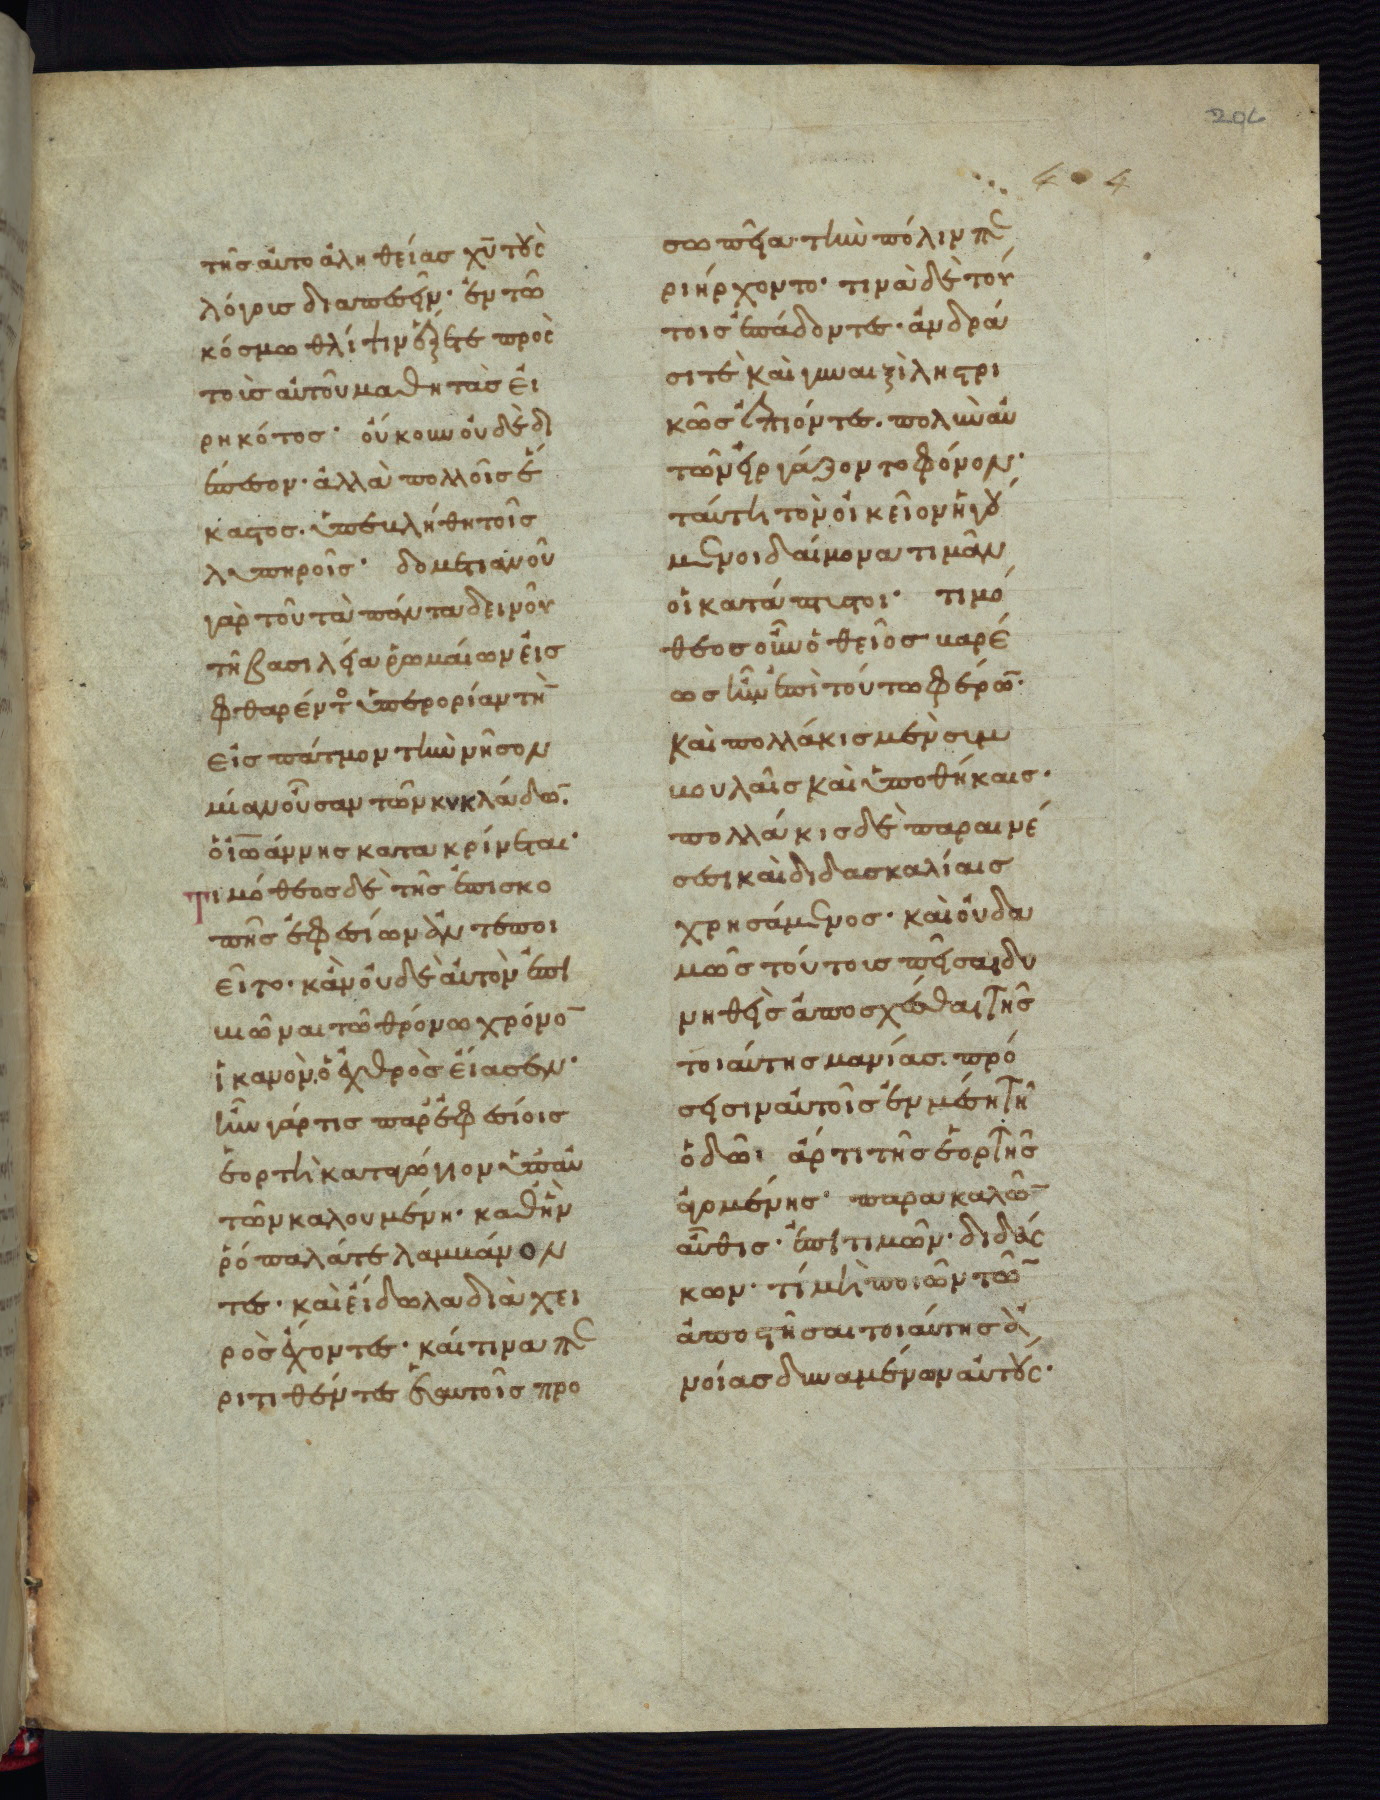 206
404
τῆς αὐτοαληθείας χῦ τοὺς
λόγοις διαπεσεῖν· ἐν τῶ
κόσμω θλίψιν ἕξετε πρὸς
τοὺς αὐτοῦ μαθητὰς εἰ
ρηκότος· οὔκουν οὐδὲ δι
έπεσον· ἀλλὰ πολλοῖς ἕ
καστος· ὑπεκλήθη τοῖς
λυπηροῖς· δομετιανοῦ
γὰρ τοῦ τὰ πάντα δεινοῦ
τῆ βασιλεία ῥωμαίων εἰσ
φθαρέντος ὑπερορίαν τὴν
εἰς πάτμον τὴν νῆσον
μίαν οὖσαν τῶν κυκλάδων
ὁ ἰωάννης κατακρίνεται·
Τιμόθεος δὲ τῆς ἐπισκο
πῆς ἐφεσίων ἀντεποι
εῖτο· κἂν οὐδὲ αὐτὸν ἐπι
μεῖναι τῶ θρόνω χρόνον
ἱκανὸν, ὁ ἐχθρὸς εἴασεν·
ἦν γάρ τις παρ' ἐφεσίοις
ἑορτὴ καταγώγιον ὑπ' αὐ
τῶν καλουμένη· καθ' ἣν
ῥόπαλά τε λαμβάνον
τες· καὶ εἴδωλα διὰ χει
ρὸς ἔχοντες· καί τινα πε
ριτιθέντες ἑαυτοῖς προ
σωπεῖα· τὴν πόλιν πε
ριήρχοντο· τινὰ δὲ τού
τοις ἐπάδοντες· ἀνδρά
σι τε καὶ γυναιξὶ ληστρι
κῶς ἐπιόντες· πολὺν αὐ
τῶν εἰργάζοντο φόνον·
ταύτη τὸν οἰκεῖον ἡγού
μενοι δαίμονα τιμᾶν
οἱ κατάπτυστοι· τιμό
θεος οὖν ὁ θεῖος βαρέ
ως ἦν ἐπὶ τούτω φέρων·
καὶ πολλάκις μὲν συμ
βουλαῖς καὶ ὑποθήκαις·
πολλάκις δὲ παραινέ
σεσι καὶ διδασκαλίαις
χρησάμενος· καὶ οὐδα
μῶς τούτοις πεῖσαι δυ
νηθεὶς ἀποσχέσθαι τῆς
τοιαύτης μανίας· πρό
σεισιν αὐτοῖς ἐν μέση τῆ
ὁδῶι ἄρτι τῆς ἑορτῆς
ἀγομένης· παρακαλῶν
αὖθις· ἐπιτιμῶν· διδάς
κων· τί μὴ ποιῶν τῶν
ἀποστῆσαι τοιαύτης ἀ
νοίας δυναμένων αὐτούς·